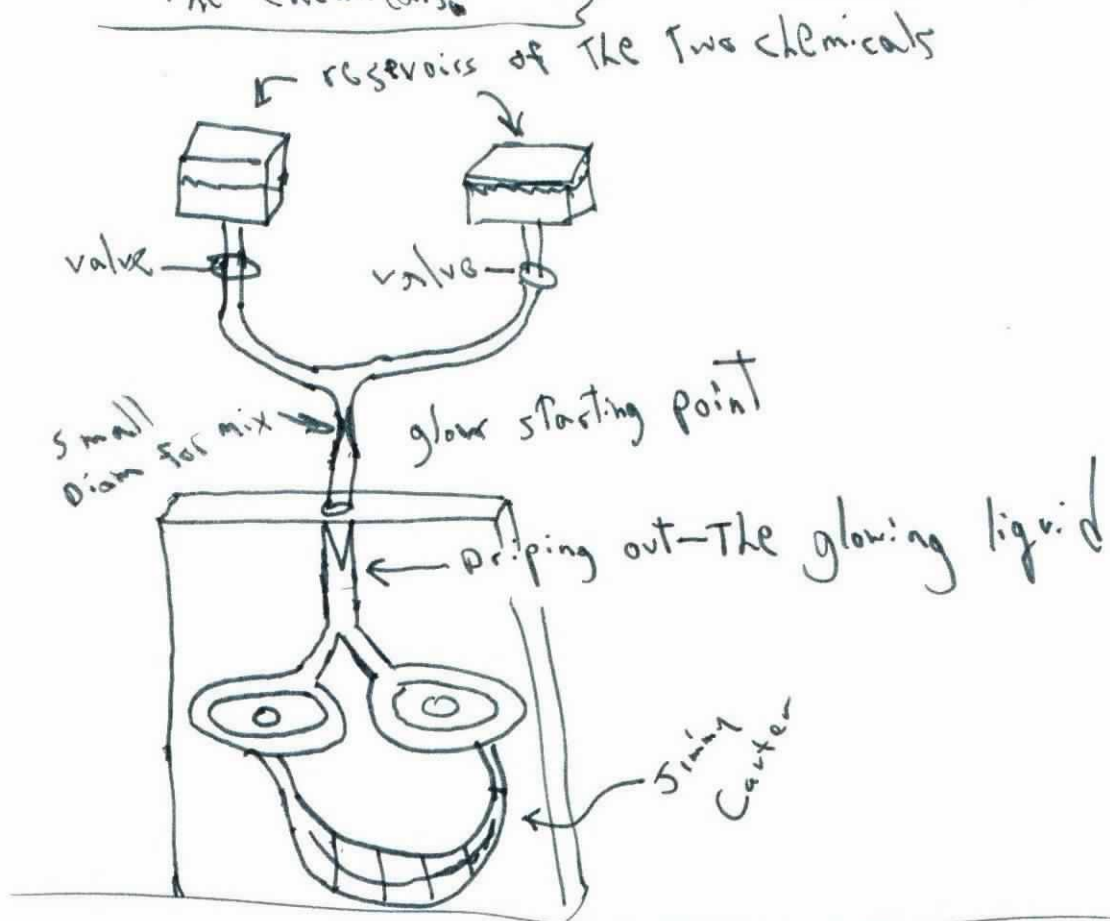 The chemicals.
resevoirs of The Two chemicals
valve
valve
small
Diam for mix
glow starting point
Driping out-The glowing liquid
Jimmy
Carter